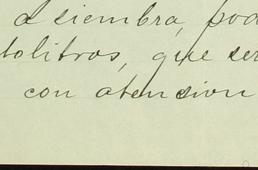 a siembra, pod
tolitros, que ser
con atension